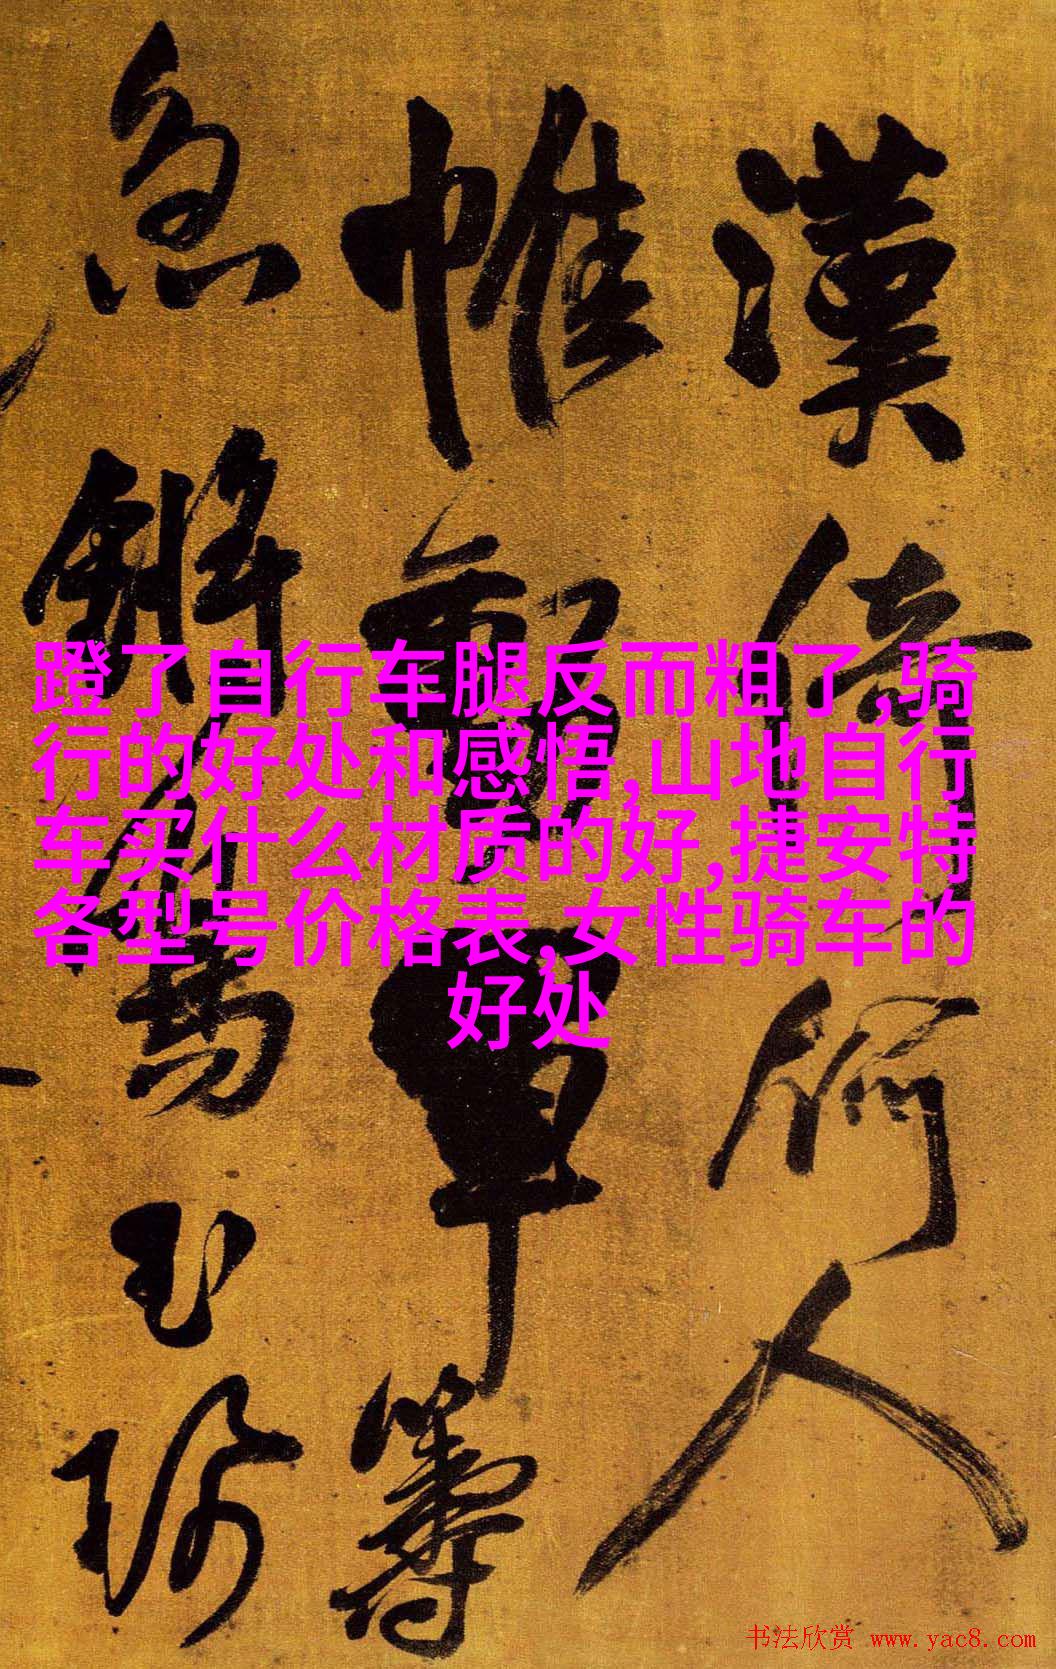 漢倚何人
帷軍籌
急
蹬了自行车腿反而粗了,骑
行的好处和感悟,山地自行
车买什么材质的好,捷安特
各型号价格表,女性骑车的
好处
书法欣赏 www.yac8.com